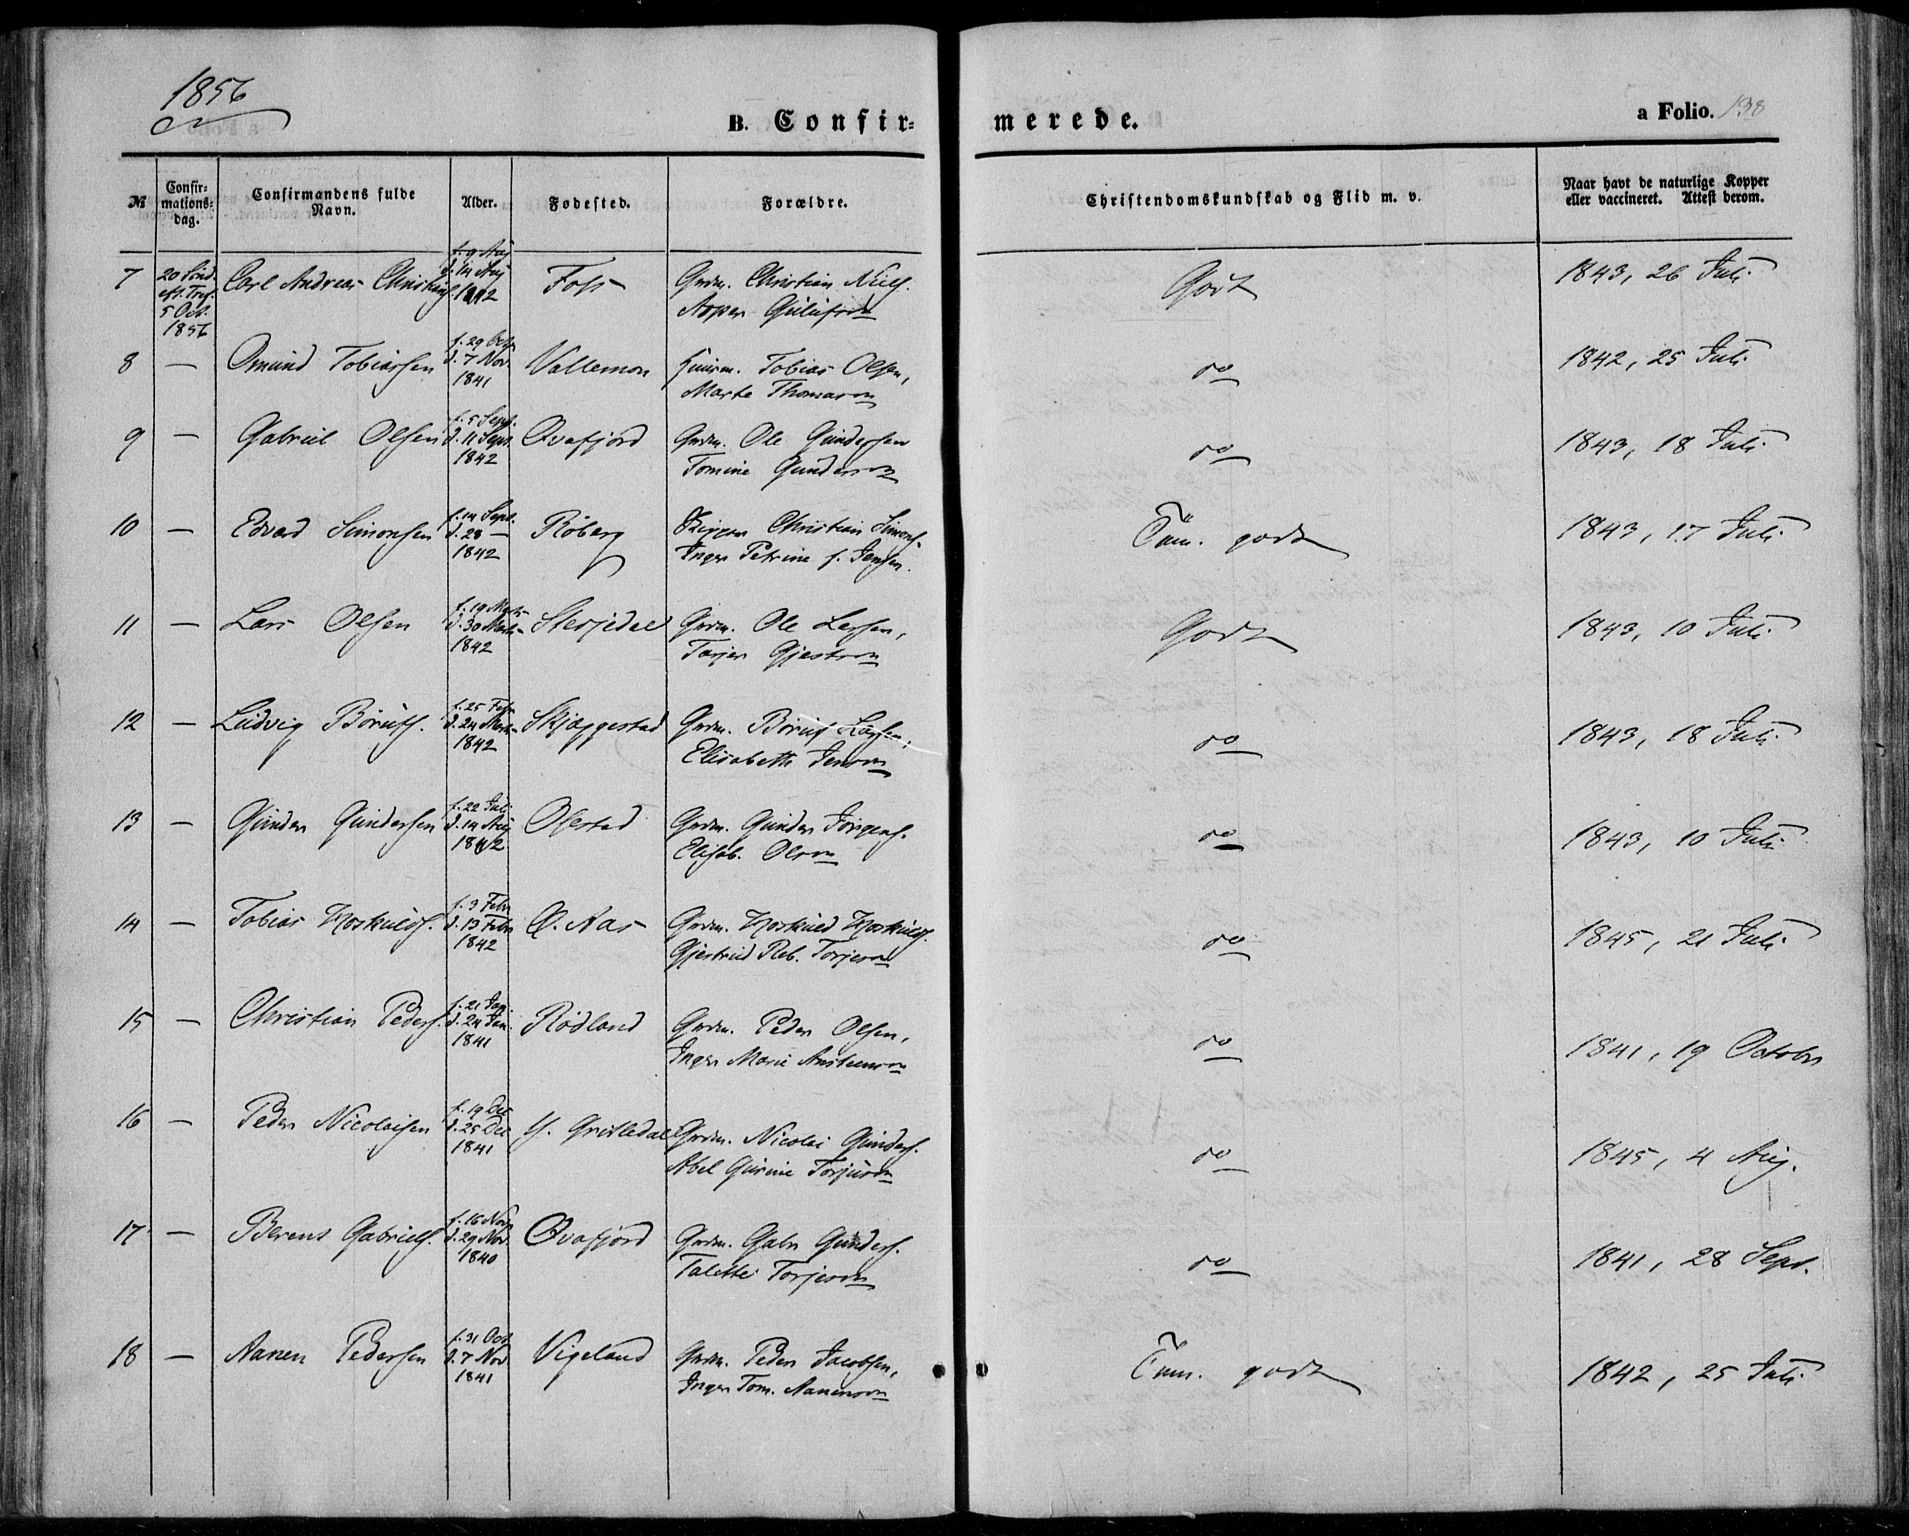 1856
B. Confir=
merede.
a Folio. 138
№ Confir=mations=dag. Confirmandens fulde Navn. Alder. Fødested. Forældre. Christendomskundskab og Flid m. v. Naar havt de naturlige Kopper eller vaccineret. Attest derom.
7 20 Sønd. eft. Tref. 5 Oct. 1856 Carl Andreas Christians. f. 9 Aug d. 14 Aug 1842 Foss Grdm. Christian Niels. Godt 1843, 26 Juli
8 — Omund Tobiassen f. 29 Octb d. 7 Nov. 1841 Vallemon Huusm. Tobias Olsen, do 1842, 25 Juli
Marte Thomasen
9 — Gabriel Olsen f. 5 Sept. d. 11 Sept. 1842 Qvafjord Grdm. Ole Gundersen do 1843, 18 Juli
Tomine Gundersen
10 — Edvard Simonsen f. 14 Sept. d. 28 — 1842 Røberg Skipper Christian Simons. Tem. godt 1843, 17 Juli
Inger Petrine f. Jensen.
11 — Lars Olsen f. 19 Marts d. 30 Marts 1842 Grdm. Ole Larsen, Godt 1843, 10 Juli
12 — Ludvig Børufs. f. 25 Feb d. 24 Marts 1842 Skjæggestad Grdm. Børuf Larsen, do 1843, 18 Juli
Elisabeth Jensen
13 — Gunder Gundersen f. 22 Juli d. 14 Aug 1842 Ølestad Grdm. Gunder Jørgens. do 1843, 10 Juli
Elisab. Olsen
14 — Tobias Hoskulds. f. 3 Febr d. 13 Febr 1842 Ø. Aas Grdm. Hoskuld Hoskulds. do 1845, 21 Juli
Gjertrud Reb. Torjesen
15 — Christian Peders. f. 21 Jan d. 24 Jan. 1841 Rødland Grdm. Peder Olsen, do 1841, 19 October
Inger Marie
16 — Peder Nicolaisen f. 19 Dec d. 25 Dec 1841 Y. Gristedal Grdm. Nicolai Gunders. do 1845, 4 Aug.
Abel Gurine Torjusen
17 — Berent Gabriels. f. 16 Nov. d. 29 Nov. 1840 Qvafjord Grdm. Gabr Gunders. do 1841, 28 Sept.
Talette Torjesen
18 — Aanen Pedersen f. 31 Oct d. 7 Nov 1841 Vigeland Grdm. Peder Jacobsen, Tem. godt 1842, 25 Juli
Inger Tom. Aanensen